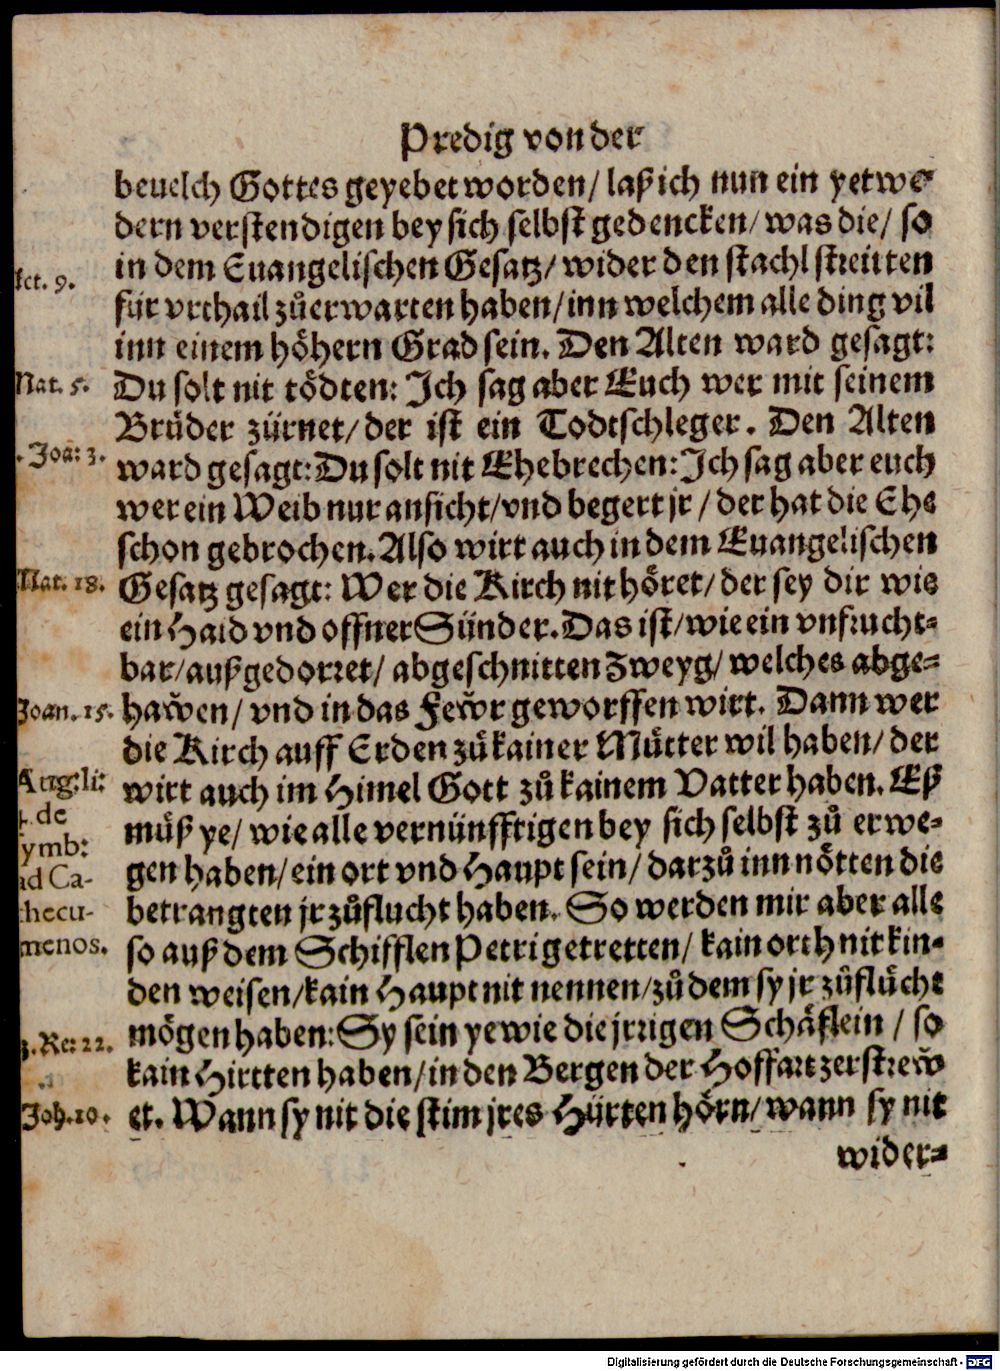 Predig von der
beuelch Gottes geyebet worden/ laß ich nun ein yetwe⸗
dern verstendigen bey sich selbst gedencken/ was die/ so
in dem Euangelischen Gesatz/ wider den stachl streitten
für vrthail zůerwarten haben/ inn welchem alle ding vil
inn einem höhern Grad sein. Den Alten ward gesagt:
Du solt nit tödten: Ich sag aber Euch wer mit seinem
Brůder zürnet/ der ist ein Todtschleger. Den Alten
ward gesagt: Du solt nit Ehebrechen: Ich sag aber euch
wer ein Weib nur ansicht/ vnd begert jr/ der hat die Ehe
schon gebrochen. Also wirt auch in dem Euangelischen
Gesatz gesagt: Wer die Kirch nit höret/ der sey dir wie
ein Haid vnd offner Sünder. Das ist/ wie ein vnfrucht⸗
bar/ außgedorret/ abgeschnitten Zweyg/ welches abge⸗
hawen/ vnd in das Fewr geworffen wirt. Dann wer
die Kirch auff Erden zů kainer Můtter wil haben/ der
wirt auch im Himel Gott zů kainem Vatter haben. Eß
můß ye/ wie alle vernünfftigen bey sich selbst zů erwe⸗
gen haben/ ein ort vnd Haupt sein/ darzů inn nötten die
betrangten jr zůflucht haben. So werden mir aber alle
so auß dem Schifflen Petri getretten/ kain orth nit kin⸗
den weisen/ kain Haupt nit nennen/ zů dem sy jr zůflucht
mögen haben: Sy sein ye wie die jrrigen Schäflein / so
kain Hirtten haben/ in den Bergen der Hoffart zerstrew
et. Wann sy nit die stim jres Hürten hörn/ wann sy nit
wider⸗
ct. 9.
Mat. 5.
Joa: 3.
Mat. 18.
Joan. 15.
Aug: li:
de
ymb:
ad Ca-
thecu-
menos.
3. Re: 22.
Joh. 10.
Digitalisierung gefördert durch die Deutsche Forschungsgemeinschaft - DFG